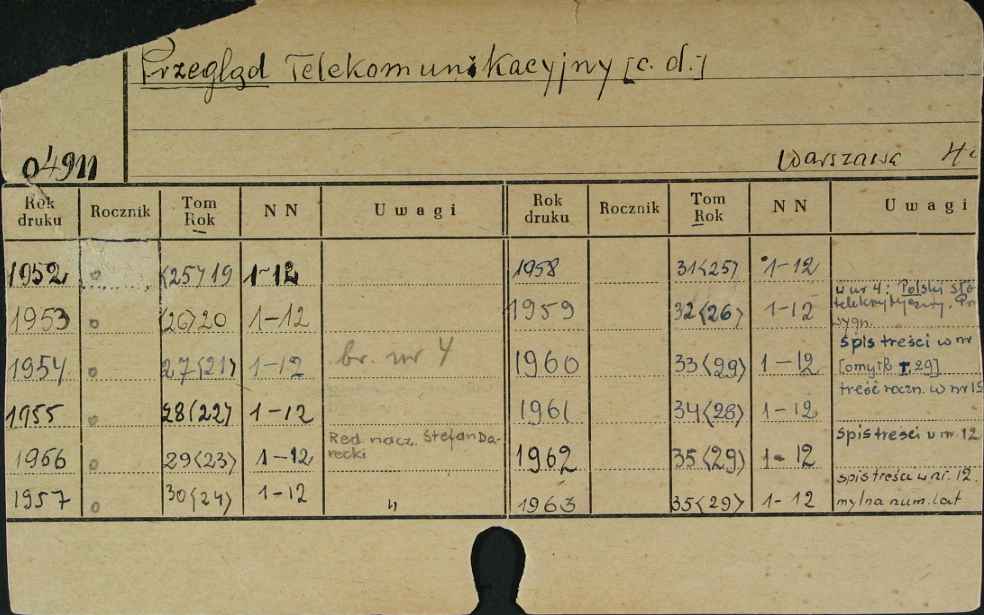 Przegląd Telekomunikacyjny [c. d.]
04911
Warszawa 4
Rok druku Rocznik Tom Rok NN Uwagi Rok druku Rocznik Tom Rok NN Uwagi
1952 o (25)19 1-12
1958 31(25) 1-12
1953 o (26)20 1-12
1959 32(26) 1-12 w nr 4: Polski
1954 o 27(21) 1-12 br. nr 4
1960 33(29) 1-12 spis treści w nr
[omyłk. 29]
1955 o 28(22) 1-12
1961 34(28) 1-12 treść roczn. w nr 15
1956 o 29(23) 1-12 Red. nacz. Stefan Darecki
1962 35(29) 1-12 spis treści w nr. 12
1957 o 30(24) 1-12 "
1963 35(29) 1-12 spis treści w nr. 12.
mylna num. lat